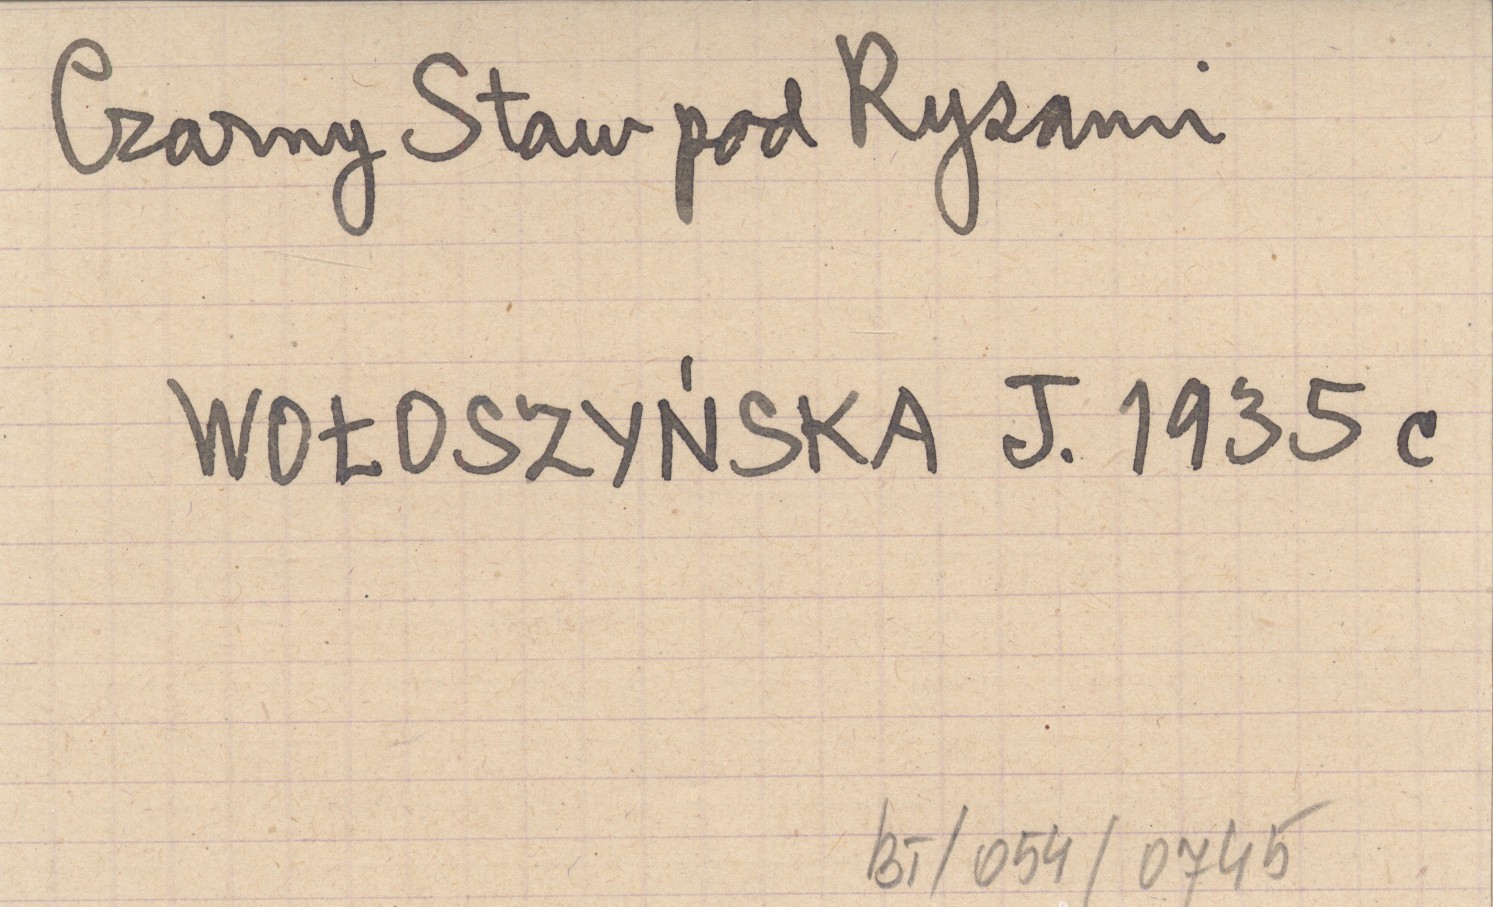 Czarny Staw pod Rysami
WOŁOSZYŃSKA J. 1935 c
BT/054/0745